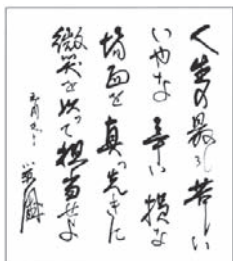 人生の最も苦しい
いやな辛い損な
場面を真っ先に
微笑を以って担当せよ